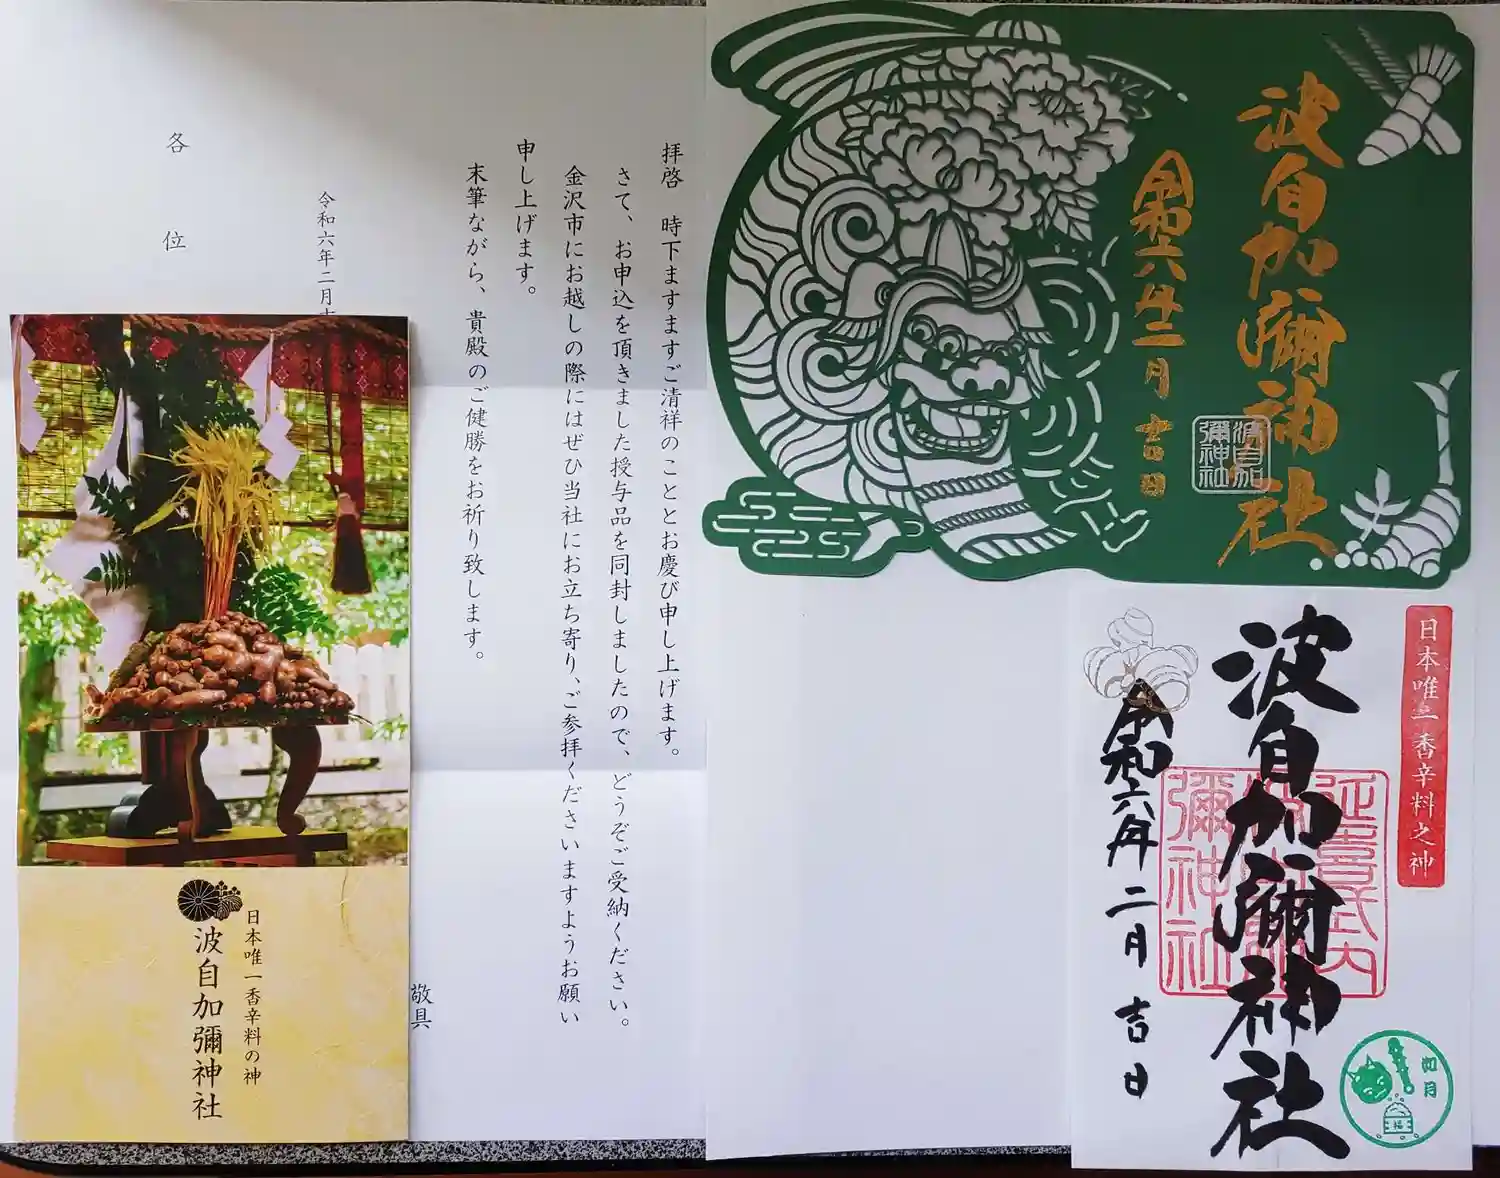 拝啓 時下ますますご清祥のこととお慶び申し上げます。
さて、お申込を頂きました授与品を同封しましたので、どうぞご受納ください。
金沢市にお越しの際にはぜひ当社にお立ち寄り、ご参拝くださいますようお願い
申し上げます。
末筆ながら、貴殿のご健勝をお祈り致します。
敬具
令和六年二月
各位
日本唯一香辛料の神
波自加彌神社
波自加彌神社
令和六年二月吉日
波自加
彌神社
日本唯一香辛料之神
波自加彌神社
延喜式内
彌神社
令和六年二月吉日
如月
福